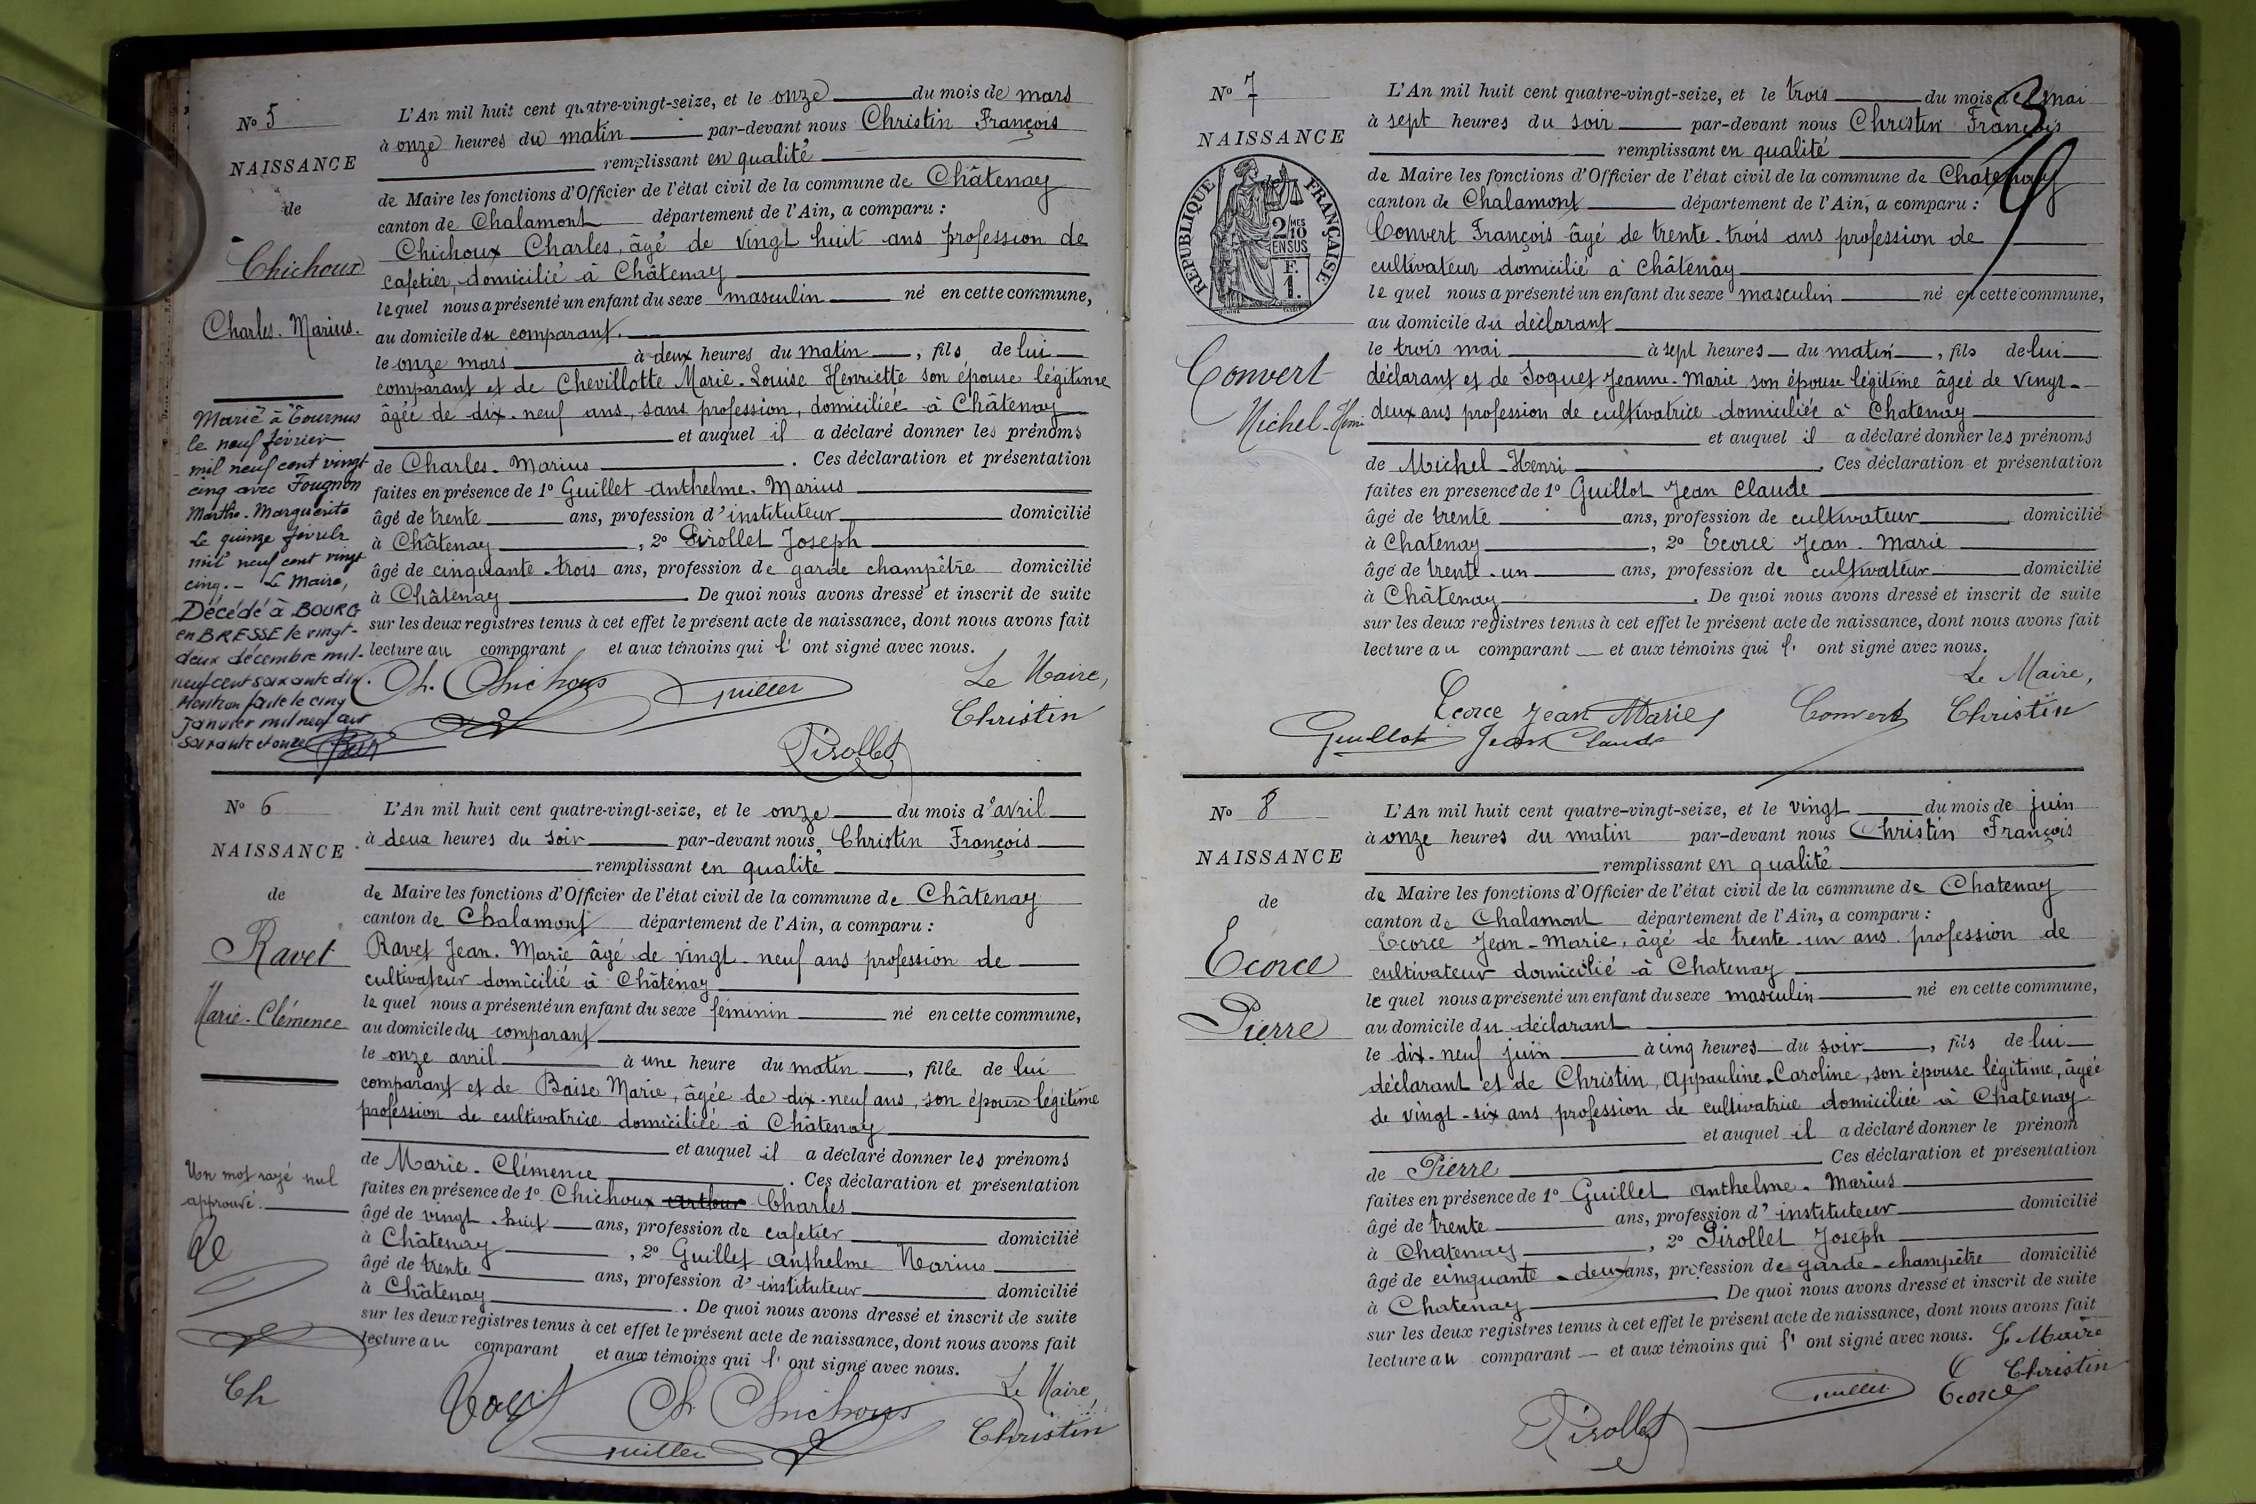 Nº 5
NAISSANCE
de
Chichoux
Charles. Marius.
Marié à Tournus
le neuf février
mil neuf cent vingt
cinq avec Fougnon
Marthe. Marguerite
Le quinze février
mil neuf cent vingt
cinq. – Le Maire,
Décédé à BOURG
en BRESSE le vingt-
deux décembre mil-
neuf cent soixante dix.
Mention faite le cinq
Janvier mil neuf cent
soixante et onze
L'An mil huit cent quatre-vingt-seize, et le onze du mois de mars
à onze heures du matin par-devant nous Christin François
remplissant en qualité
de Maire les fonctions d'Officier de l'état civil de la commune de Châtenay
canton de Chalamont département de l'Ain, a comparu :
Chichoux Charles, âgé de vingt huit ans profession de
cafetier, domicilié à Châtenay
lequel nous a présenté un enfant du sexe masculin né en cette commune,
au domicile du comparant.
le onze mars à deux heures du matin, fils de lui
comparant et de Chevillotte Marie-Louise Henriette son épouse légitime
âgée de dix-neuf ans, sans profession, domiciliée à Châtenay
et auquel il a déclaré donner les prénoms
de Charles-Marius. Ces déclaration et présentation
faites en présence de 1º Guillet Anthelme-Marius
âgé de trente ans, profession d'instituteur domicilié
à Châtenay, 2º Pirollet Joseph
âgé de cinquante-trois ans, profession de garde champêtre domicilié
à Châtenay. De quoi nous avons dressé et inscrit de suite
sur les deux registres tenus à cet effet le présent acte de naissance, dont nous avons fait
lecture au comparant et aux témoins qui l' ont signé avec nous.
Ch. Chichoux Guillet Le Maire,
Christin
Pirollet
Nº 6
NAISSANCE
de
Ravet
Marie-Clémence
Un mot rayé nul
approuvé.
Ch
L'An mil huit cent quatre-vingt-seize, et le onze du mois d'avril
à deux heures du soir par-devant nous Christin François
remplissant en qualité
de Maire les fonctions d'Officier de l'état civil de la commune de Châtenay
canton de Chalamont département de l'Ain, a comparu :
Ravet Jean-Marie âgé de vingt-neuf ans profession de
cultivateur domicilié à Châtenay
lequel nous a présenté un enfant du sexe féminin né en cette commune,
au domicile du comparant
le onze avril à une heure du matin, fille de lui
comparant et de Baise Marie, âgée de dix-neuf ans, son épouse légitime
profession de cultivatrice domiciliée à Châtenay
et auquel il a déclaré donner les prénoms
de Marie-Clémence. Ces déclaration et présentation
faites en présence de 1º Chichoux Arthur Charles
âgé de vingt-huit ans, profession de cafetier domicilié
à Châtenay, 2º Guillet Anthelme Marius
âgé de trente ans, profession d'instituteur domicilié
à Châtenay. De quoi nous avons dressé et inscrit de suite
sur les deux registres tenus à cet effet le présent acte de naissance, dont nous avons fait
lecture au comparant et aux témoins qui l' ont signé avec nous.
Ch Chichoux Le Maire,
Guillet Christin
Nº 7
NAISSANCE
REPUBLIQUE FRANÇAISE
2/10 MES
EN SUS
F.
1.
Convert
Michel-Henri
L'An mil huit cent quatre-vingt-seize, et le trois du mois de mai
à sept heures du soir par-devant nous Christin François
remplissant en qualité
de Maire les fonctions d'Officier de l'état civil de la commune de Chatenay
canton de Chalamont département de l'Ain, a comparu :
Convert François âgé de trente-trois ans profession de
cultivateur domicilié à Châtenay
lequel nous a présenté un enfant du sexe masculin né en cette commune,
au domicile du déclarant
le trois mai à sept heures du matin, fils de lui
déclarant et de Soquet Jeanne-Marie son épouse légitime âgée de vingt-
deux ans profession de cultivatrice domiciliée à Chatenay
et auquel il a déclaré donner les prénoms
de Michel-Henri. Ces déclaration et présentation
faites en présence de 1º Guillot Jean Claude
âgé de trente ans, profession de cultivateur domicilié
à Chatenay, 2º Ecorce Jean-Marie
âgé de trente-un ans, profession de cultivateur domicilié
à Châtenay. De quoi nous avons dressé et inscrit de suite
sur les deux registres tenus à cet effet le présent acte de naissance, dont nous avons fait
lecture au comparant et aux témoins qui l' ont signé avec nous.
Le Maire,
Ecorce Jean Marie Convert Christin
Guillot Jean Claude
Nº 8
NAISSANCE
de
Ecorce
Pierre
L'An mil huit cent quatre-vingt-seize, et le vingt du mois de juin
à onze heures du matin par-devant nous Christin François
remplissant en qualité
de Maire les fonctions d'Officier de l'état civil de la commune de Chatenay
canton de Chalamont département de l'Ain, a comparu :
Ecorce Jean-Marie, âgé de trente-un ans profession de
cultivateur domicilié à Chatenay
lequel nous a présenté un enfant du sexe masculin né en cette commune,
au domicile du déclarant
le dix-neuf juin à cinq heures du soir, fils de lui
déclarant et de Christin, Appauline-Caroline, son épouse légitime, âgée
de vingt-six ans profession de cultivatrice domiciliée à Chatenay
et auquel il a déclaré donner le prénom
de Pierre Ces déclaration et présentation
faites en présence de 1º Guillet Anthelme-Marius
âgé de trente ans, profession d'instituteur domicilié
à Chatenay, 2º Pirollet Joseph
âgé de cinquante-deux ans, profession de garde-champêtre domicilié
à Chatenay De quoi nous avons dressé et inscrit de suite
sur les deux registres tenus à cet effet le présent acte de naissance, dont nous avons fait
lecture au comparant et aux témoins qui l' ont signé avec nous. Le Maire
Christin
Guillet Ecorce
Pirollet